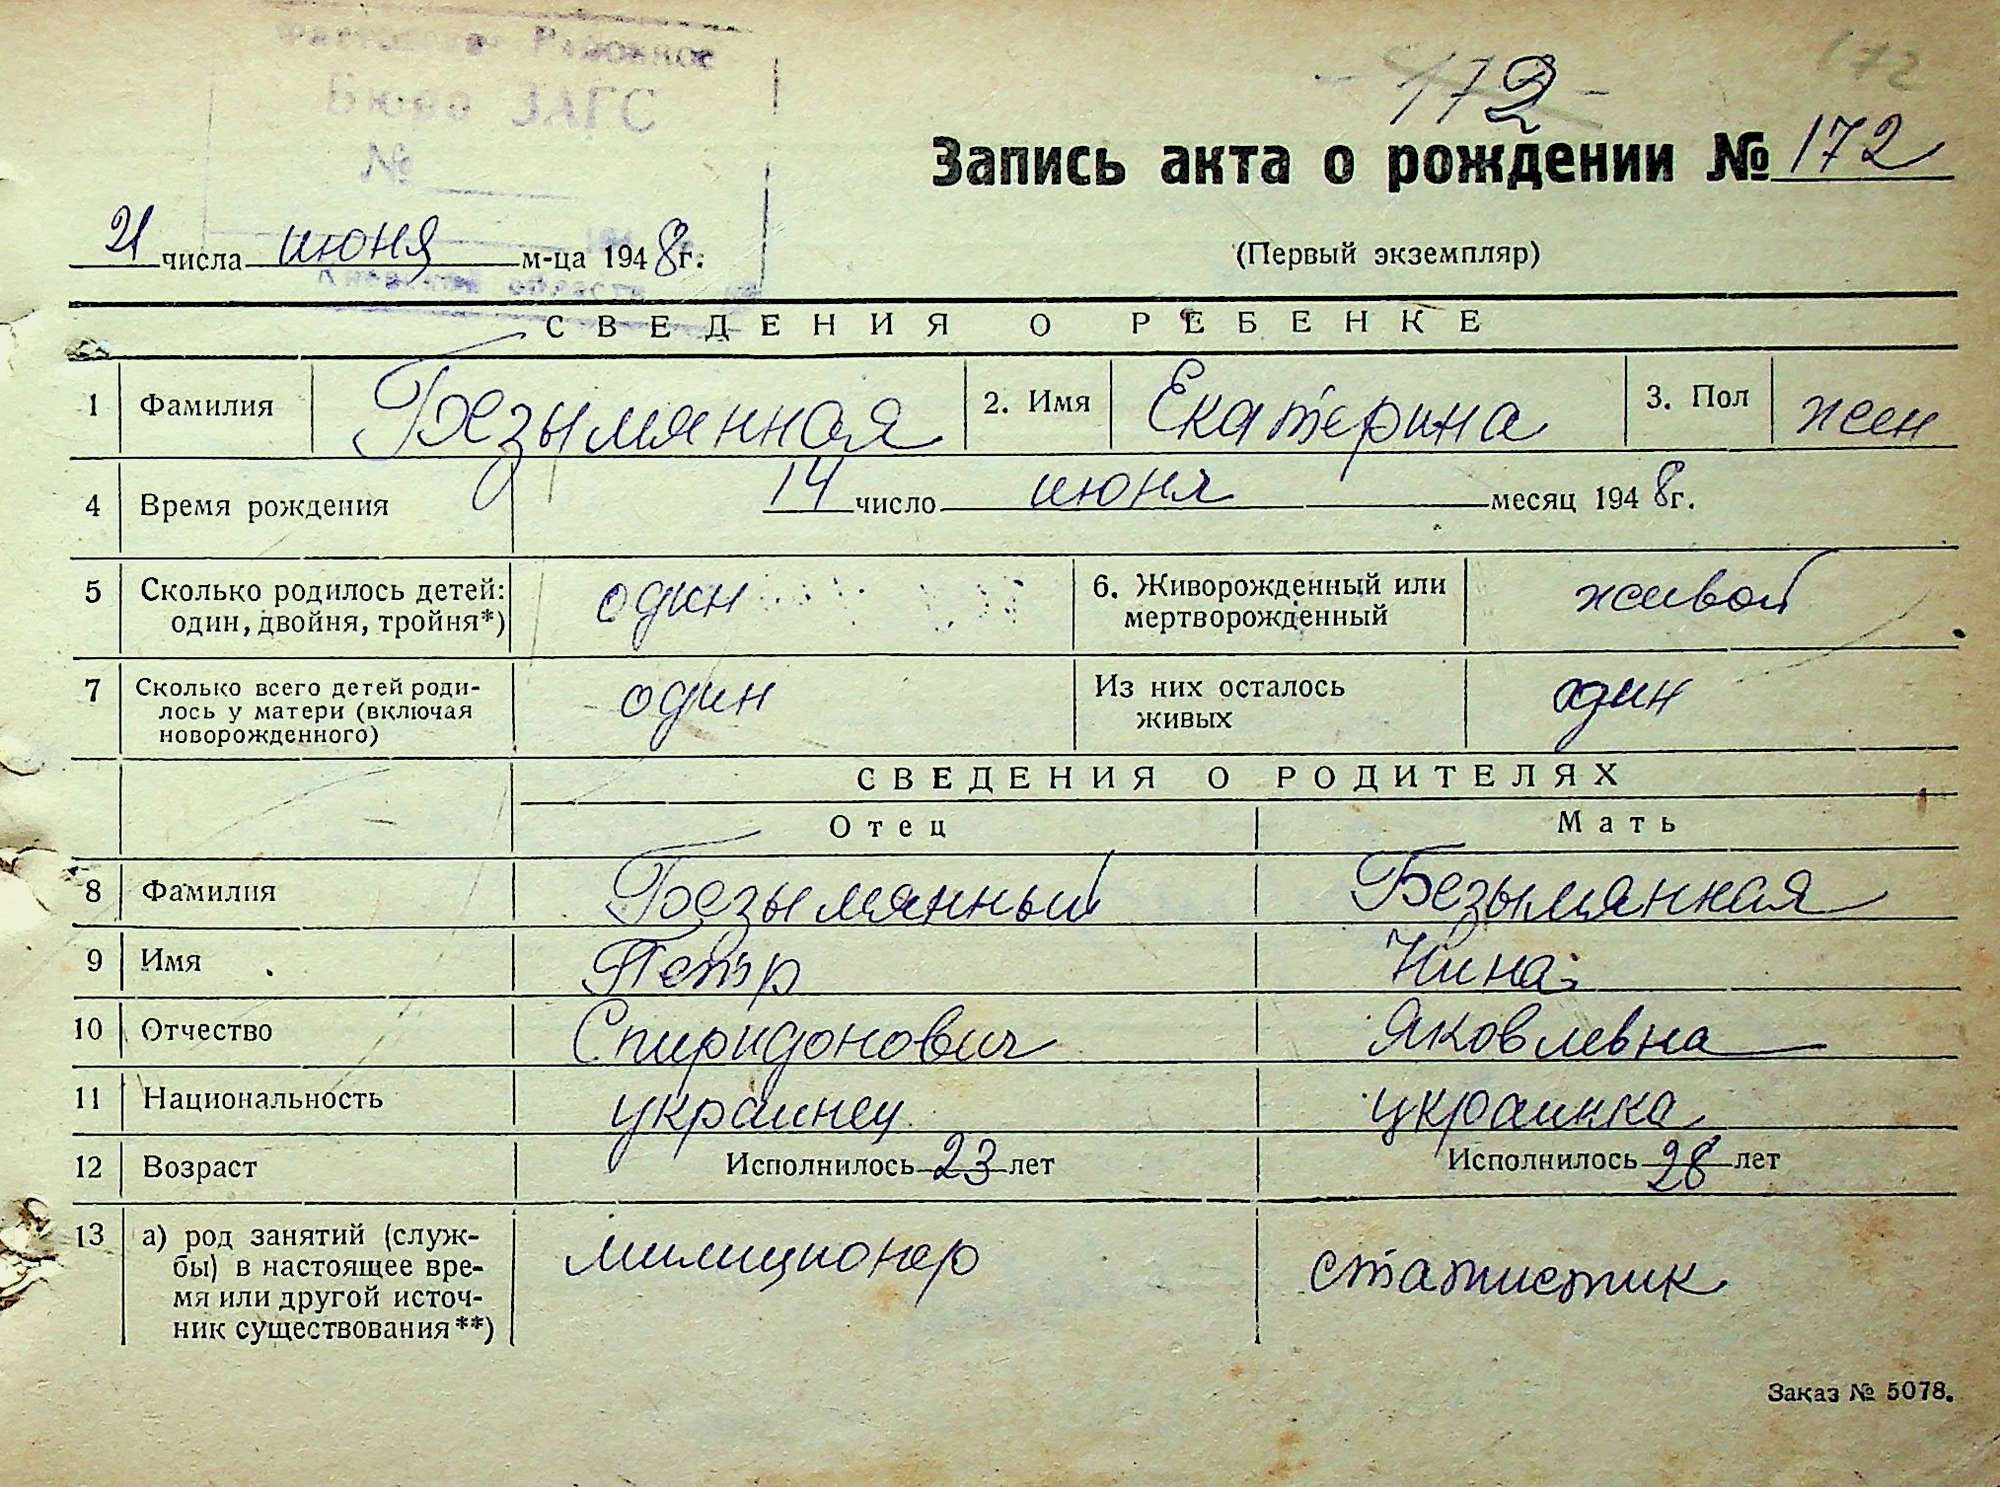 Районное
Бюро ЗАГС
№
172
- 172 -
Запись акта о рождении № 172
21 числа июня м-ца 1948 г.
(Первый экземпляр)
области
СВЕДЕНИЯ О РЕБЕНКЕ
1 Фамилия Безымянная 2. Имя Екатерина 3. Пол жен
4 Время рождения 14 число июня месяц 1948 г.
5 Сколько родилось детей: один 6. Живорожденный или живой
один, двойня, тройня*) мертворожденный
7 Сколько всего детей роди- один Из них осталось один
лось у матери (включая живых
новорожденного)
СВЕДЕНИЯ О РОДИТЕЛЯХ
Отец Мать
8 Фамилия Безымянный Безымянная
9 Имя Петр Нина
10 Отчество Спиридонович Яковлевна
11 Национальность украинец украинка
12 Возраст Исполнилось 23 лет Исполнилось 28 лет
13 а) род занятий (служ- милиционер статистик
бы) в настоящее вре-
мя или другой источ-
ник существования**)
Заказ № 5078.